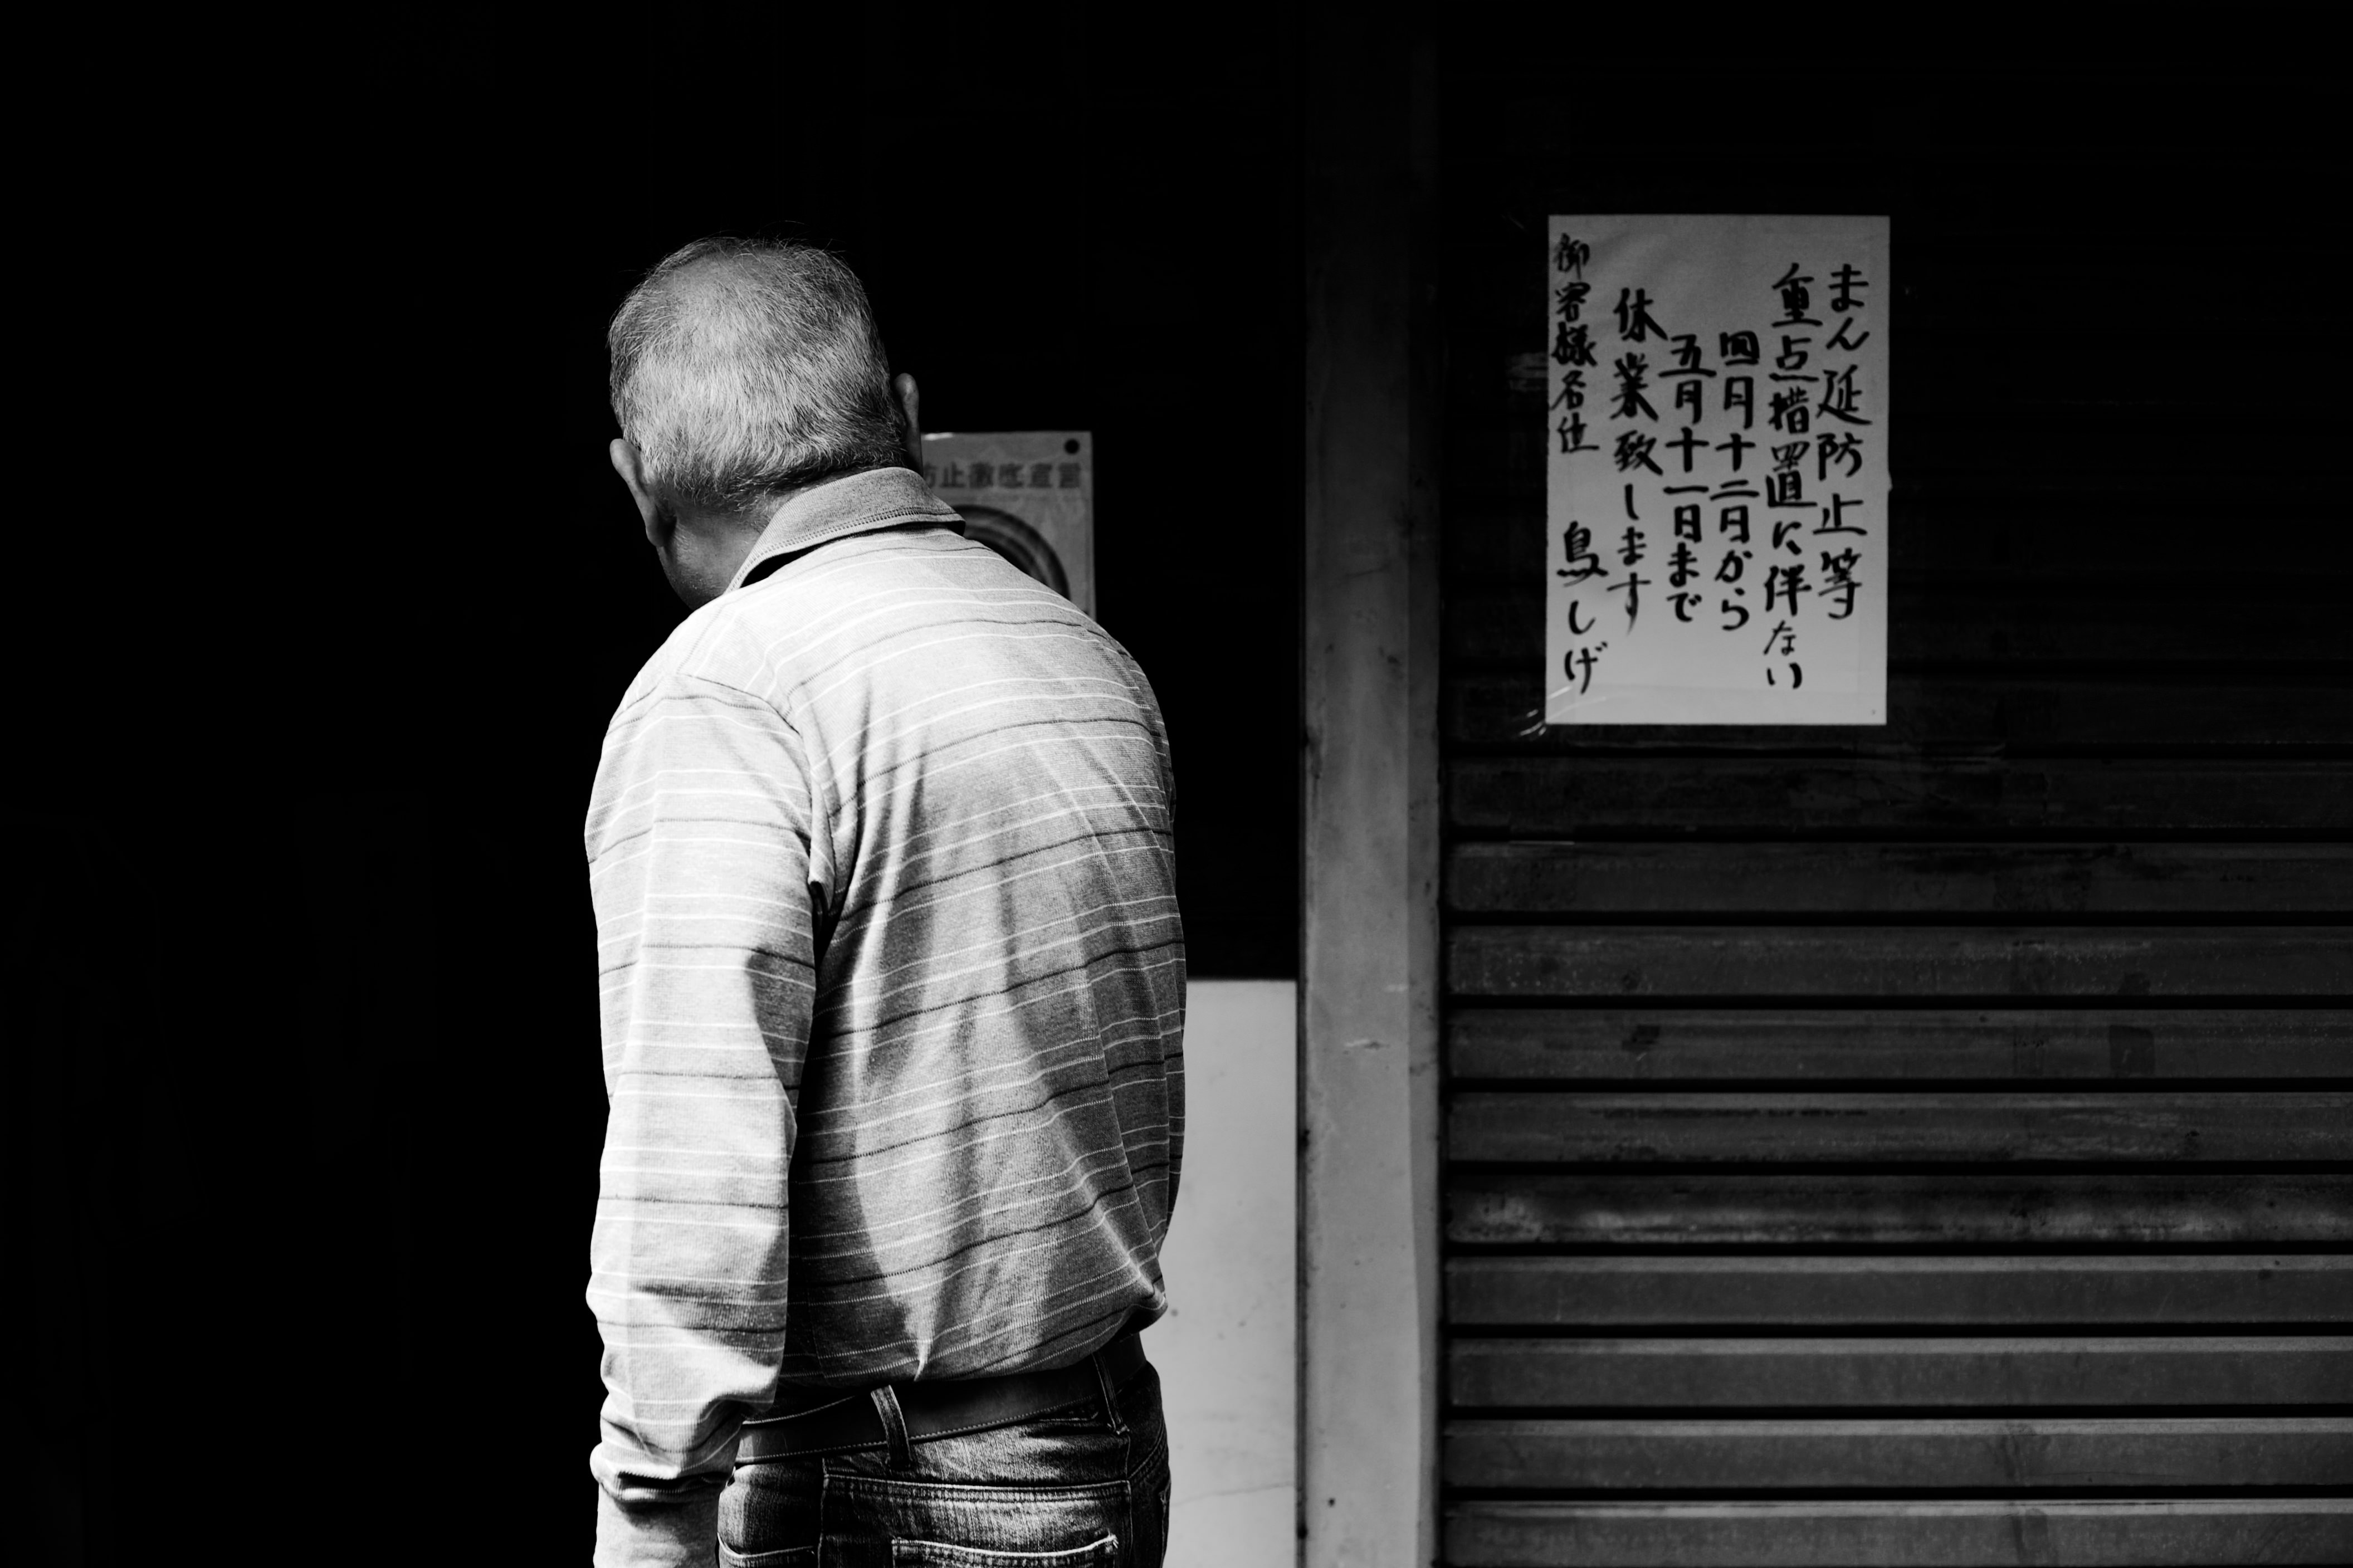 まん延防止等
重点措置に伴ない
四月十二日から
五月十一日まで
休業致します
御客様各位 鳥しげ
防止徹底宣言